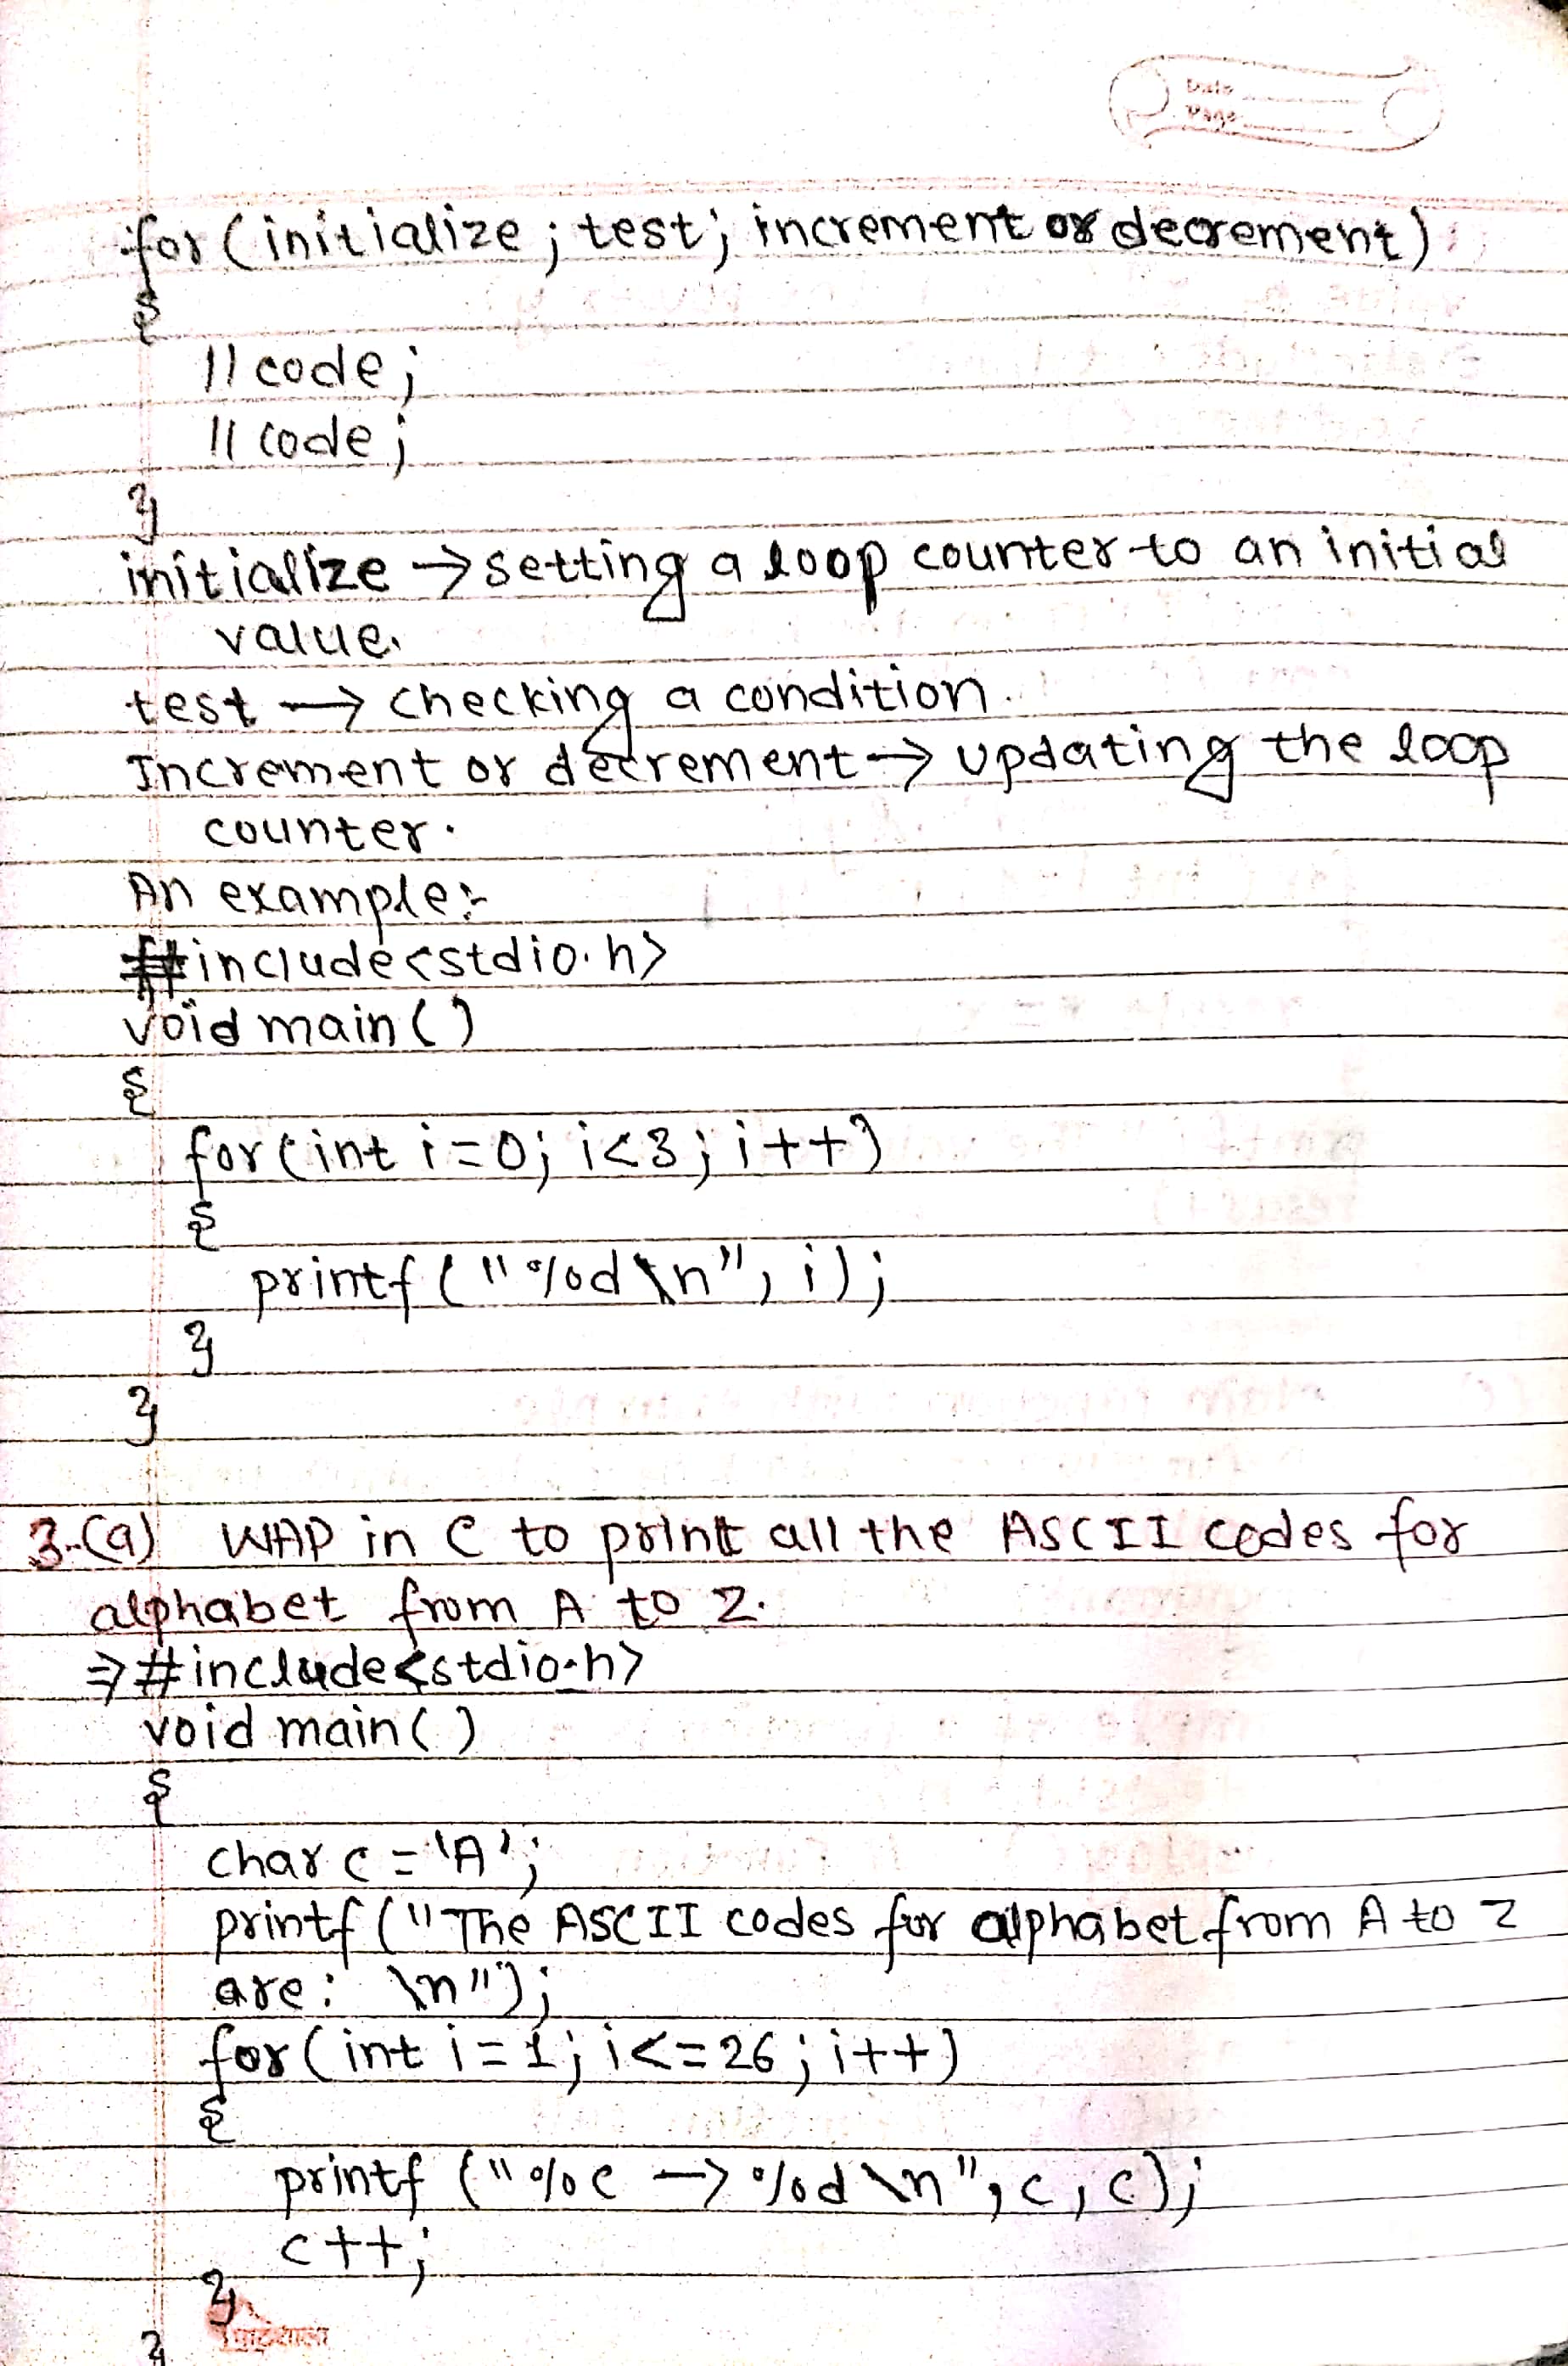 Date
Page
for (initialize ; test ; increment or decrement)
{
// code ;
// code ;
}
initialize → setting a loop counter to an initial
value.
test → checking a condition.
Increment or decrement → updating the loop
counter.
An example:-
#include<stdio.h>
void main()
{
for(int i=0; i<3; i++)
{
printf("%d\n", i);
}
}
3.(a) WAP in C to print all the ASCII codes for
alphabet from A to Z.
⇒ #include<stdio.h>
void main()
{
char c = 'A';
printf("The ASCII codes for alphabet from A to Z
are: \n");
for(int i=1; i<=26; i++)
{
printf("%c → %d\n", c, c);
c++;
}
पाठशाला
}